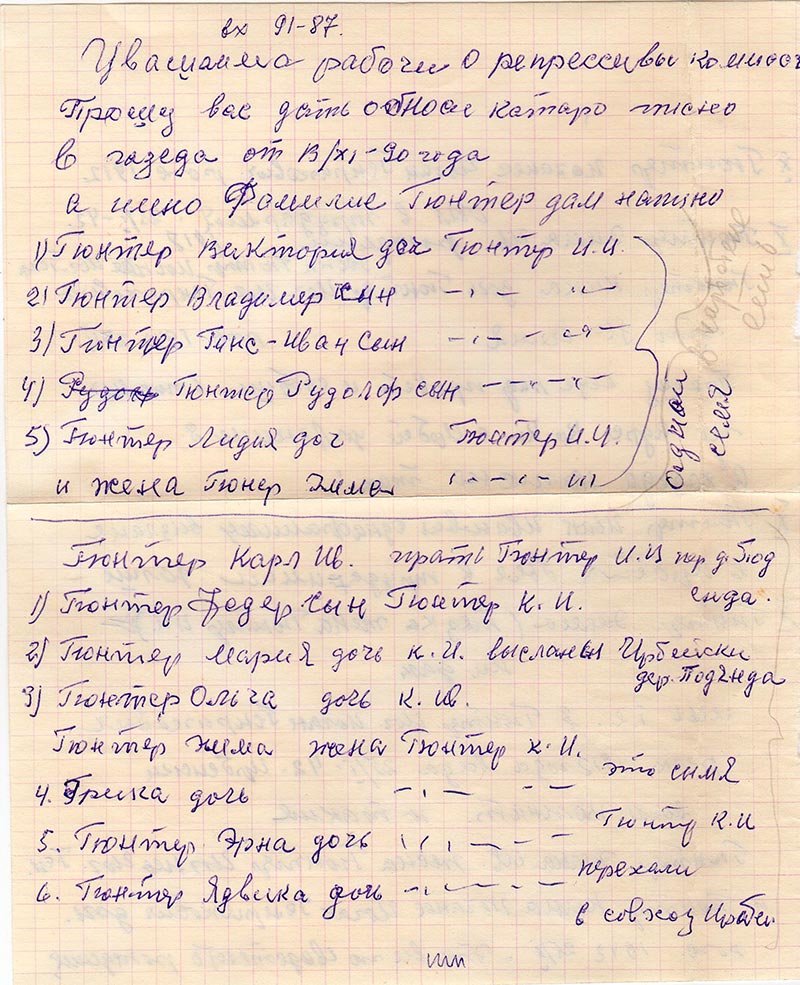 вх 91-87.
Увашаима рабочи о репрессивы комисс
Прошу вас дать относи катаро писно
в газеда от 13/XI-90 года
а имно Фамилие Гюнтер дам натино
1) Гюнтер Виктория доч Гюнтер И.И.
2) Гюнтер Владимер сын -"- - "-
3) Гюнтер Ганс-Иван Сын -"- - "-
4) Гюнтер Рудолф сын -"- - "-
5) Гюнтер Лидия доч Гюнтер И.И.
и жена Гюнер Эмма " - " - "
однай семя
в народние семв
Гюнтер Карл Ив. прать Гюнтер И.И пер д. Под
енда.
1) Гюнтер Федер сын Гюнтер К. И.
2) Гюнтер Мария дочь К.И. высланы Ирбейски
дер. Подъянда
3) Гюнтер Ольга дочь К. Ив.
Гюнтер Хима жена Гюнтер К. И.
это симя
4. Фрика дочь -"- - -
Гюнтр К.И
5. Гюнтер Эрна дочь
перехали
6. Гюнтер Ядвика дочь -"- - -
в совхоз Ирбеи